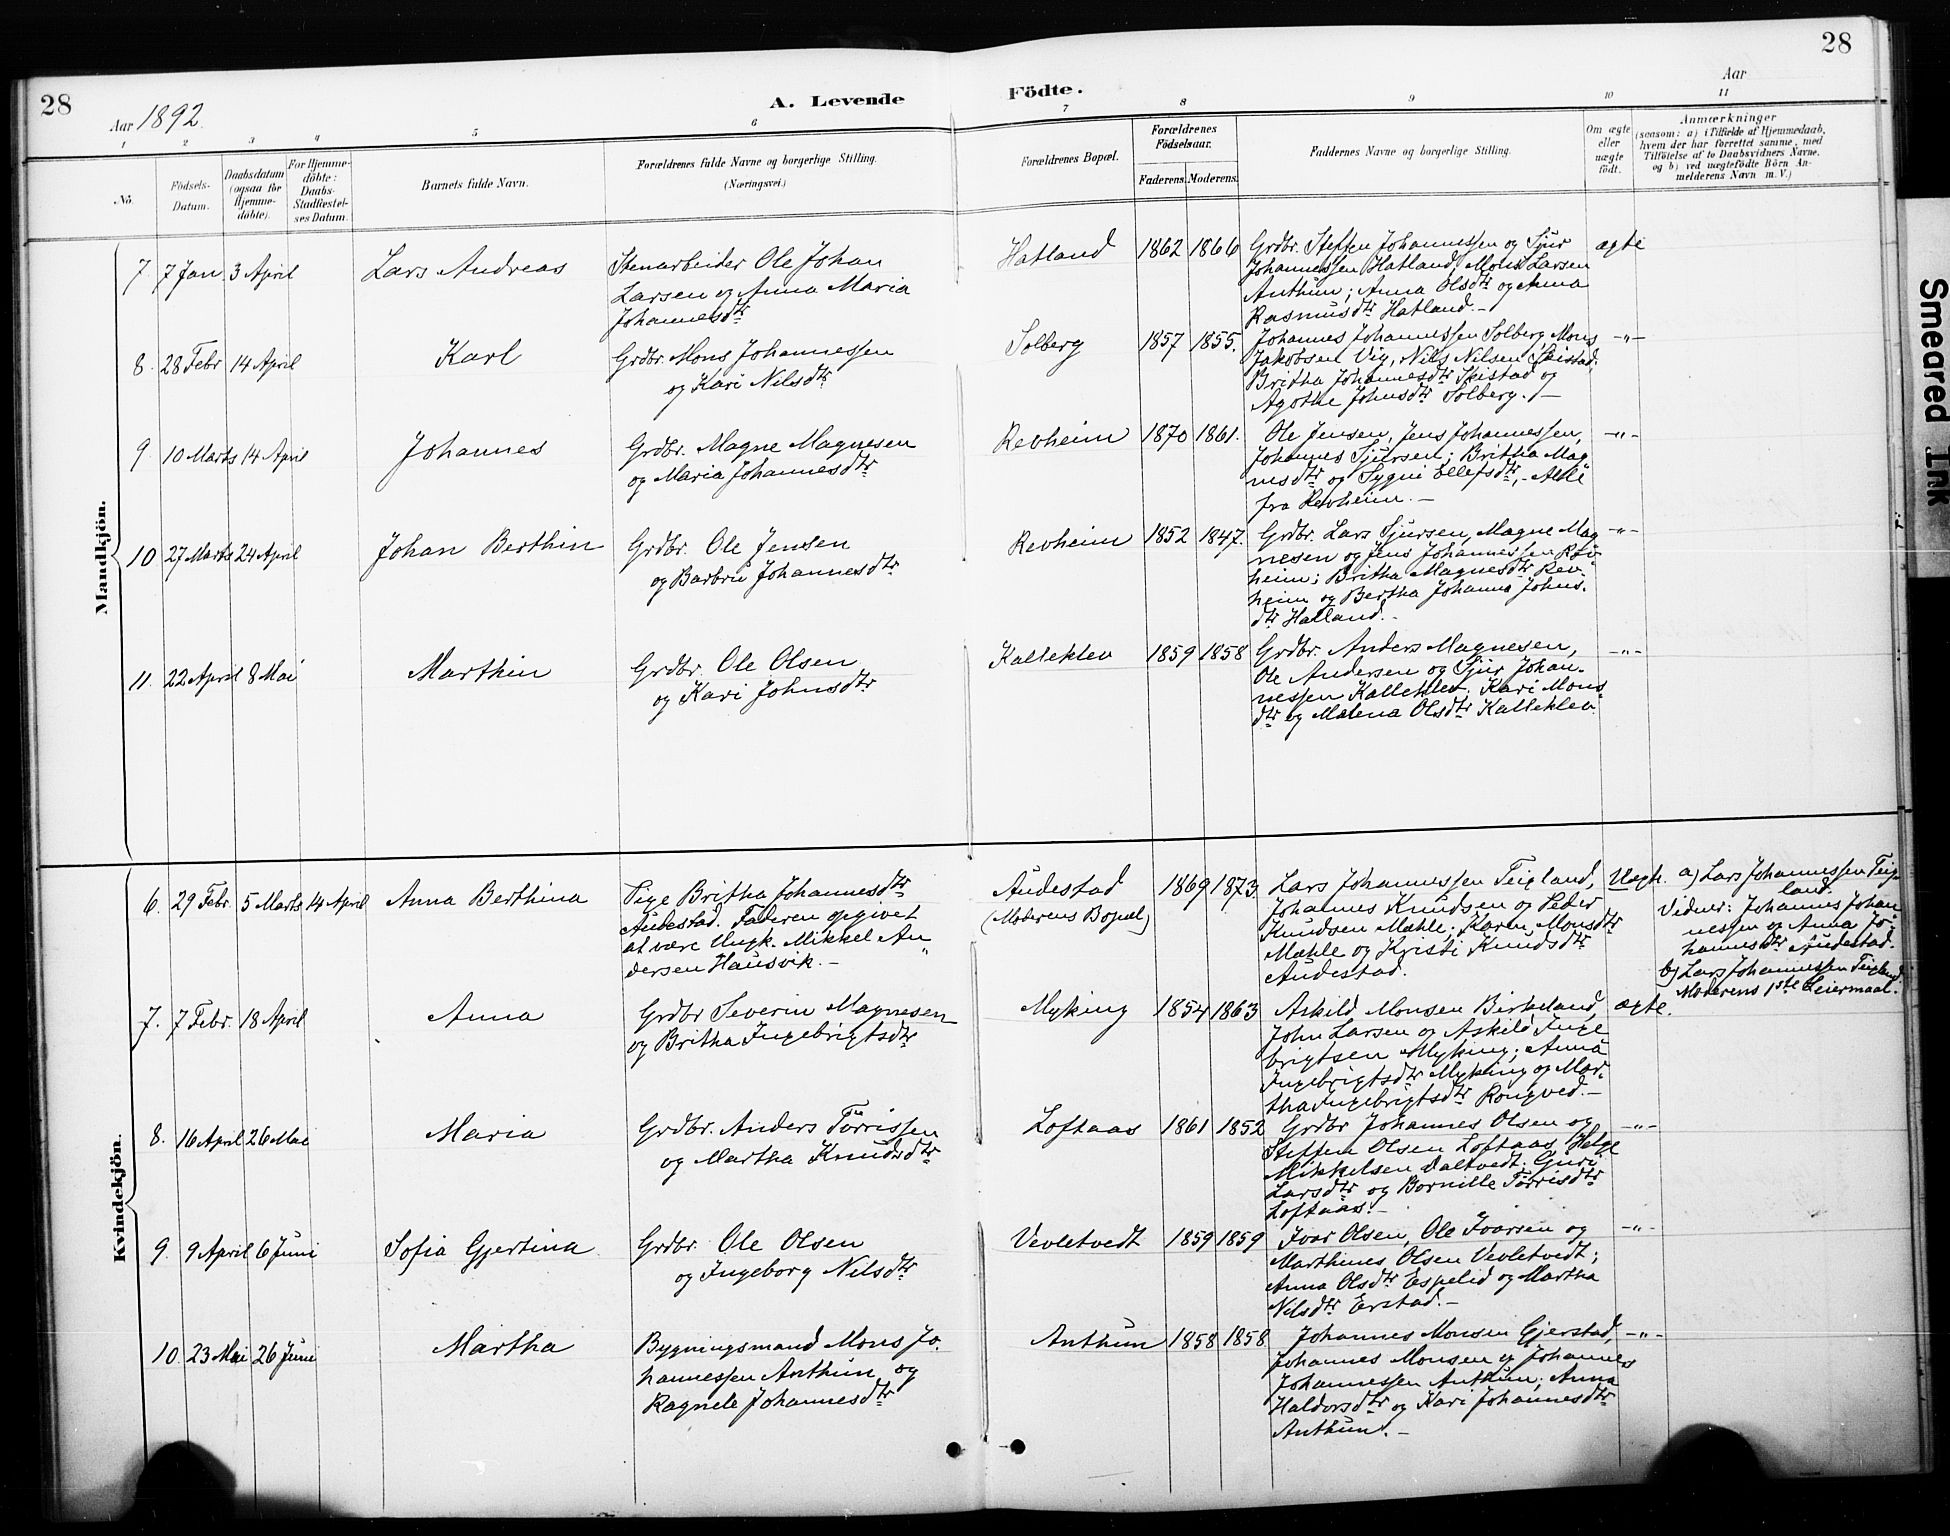 28
28
Aar 1892.
A. Levende
Födte.
Aar
1 2 3 4 5 6 7 8 9 10 11
No.
Födsels-
Datum.
Daabsdatum
(ogsaa for
Hjemme-
döbte).
For Hjemme-
döbte:
Daabs-
Stadfæstel-
ses Datum.
Barnets fulde Navn.
Forældrenes fulde Navne og borgerlige Stilling.
(Næringsvei.)
Forældrenes Bopæl.
Forældrenes
Födselsaar.
Faderens. Moderens.
Faddernes Navne og borgerlige Stilling.
Om ægte
eller
uægte
födt.
Anmærkninger
(saasom: a) i Tilfælde af Hjemmedaab,
hvem der har forrettet samme, med
Tilföielse af to Daabsvidners Navne,
og b) ved uægtefödte Börn An-
melderens Navn m. V.)
Mandkjön.
7. 7 Jan. 3 April Lars Andreas
Stenarbeider Ole Johan
Larsen og Anna Maria
Johannesdtr
Hatland 1862 1866
Grdbr. Steffen Johannessen og Sjur
Johannessen Hatland, Mons Larsen
Anthun; Anna Olsdtr og Anna
Rasmusdtr Hatland.-
ægte
8. 28 Febr 14 April Karl
Grdbr. Mons Johannessen
og Kari Nilsdtr
Solberg 1857 1855.
Johannes Johannessen Solberg, Mons
Jakobsen Vig, Nils Nilsen Skistad;
Britha Johannesdtr Skistad og
Agothe Johnsdtr Solberg.-
-"-
9. 10 Marts 14 April Johannes
Grdbr. Magne Magnesen
og Maria Johannesdtr
Revheim 1870 1861.
Ole Jensen, Jens Johannessen,
Johannes Sjursen; Britha Mag-
nesdtr og Sygni Ellefsdtr, - Alle
fra Revheim.-
-"-
10 27 Marts 24 April Johan Berthin
Grdbr. Ole Jensen
og Barbru Johannesdtr
Revheim 1852 1847.
Grdbr. Lars Sjursen, Magne Mag-
nesen og Jens Johannessen Rev-
heim; Britha Magnesdtr Rev-
heim og Bertha Johanna Johns-
dtr Hatland.-
-"-
11. 22 April 8 Mai Marthin
Grdbr. Ole Olsen
og Kari Johnsdtr
Kalleklev 1859 1858
Grdbr. Anders Magnesen,
Ole Andersen og Sjur Johan-
nessen Kalleklev. Kari Mons-
dtr og Malena Olsdtr Kalleklev.
-"-
Kvindekjön.
6. 29 Febr. 5 Marts 14 April Anna Berthina
Pige Britha Johannesdtr
Audestad. Faderen opgivet
at være Ungk. Mikkel An-
dersen Hausvik.-
Audestad
(Moderens Bopæl)
1869 1873.
Lars Johannessen Teigland,
Johannes Knudsen og Peder
Knudsen Mæhle; Karen Monsdtr
Mæhle og Kristi Knudsdtr
Audestad.
Uægte.
a) Lars Johannessen Teig-
land.
Vidner: Johannes Johan-
nessen og Anna Jo-
hannesdtr Audestad.
b) Lars Johannessen Teigland
Moderens 1ste Leiermaal.
7. 7 Febr. 18 April Anna
Grdbr Severin Magnesen
og Britha Ingebrigtsdtr
Myking 1854 1863
Askild Monsen Birkeland,
John Larsen og Askild Inge-
brigtsen Myking; Anna
Ingebrigtsdtr Myking og Mar-
tha Ingebrigtsdtr Rongved.-
ægte.
8. 16 April 26 Mai Maria
Grdbr. Anders Tørrissen
og Martha Knudsdtr
Loftaas 1861 1852
Grdbr Johannes Olsen og
Steffen Olsen Loftaas, Helge
Mikkelsen Daltvedt; Guri
Larsdtr og Bornille Tørrisdtr
Loftaas.-
-"-
9. 9 April 6 Juni Sofia Gjertina
Grdbr. Ole Olsen
og Ingeborg Nilsdtr
Vevletvedt 1859 1859
Ivar Olsen, Ole Ivarsen og
Marthines Olsen Vevletvedt;
Anna Olsdtr Espelid og Martha
Nilsdtr Erstad.-
-"-
10. 23 Mai 26 Juni Martha
Bygningsmand Mons Jo-
hannessen Anthun og
Ragnele Johannesdtr
Anthun 1858 1858
Johannes Monsen Gjerstad,
Johannes Monsen og Johannes
Johannessen Anthun; Anna
Haldorsdtr og Kari Johannesdtr
Anthun.-
-"-
Smeared Ink